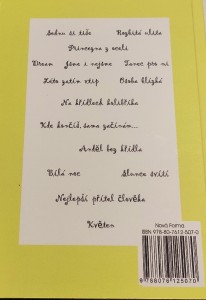 Sednu si tiše Rozbitá ulita
Princezna z oceli
Dream Jsme i nejsme Tanec pro ni
Léto zatím vtip Osoba blízká
Na křídlech kolibříka
Kde končíš, sama začínám...
Anděl bez křídla
Bílá noc Slunce svítí
Nejlepší přítel člověka
Květen
Nová Forma
ISBN 978-80-7612-507-0
9 788076 125070